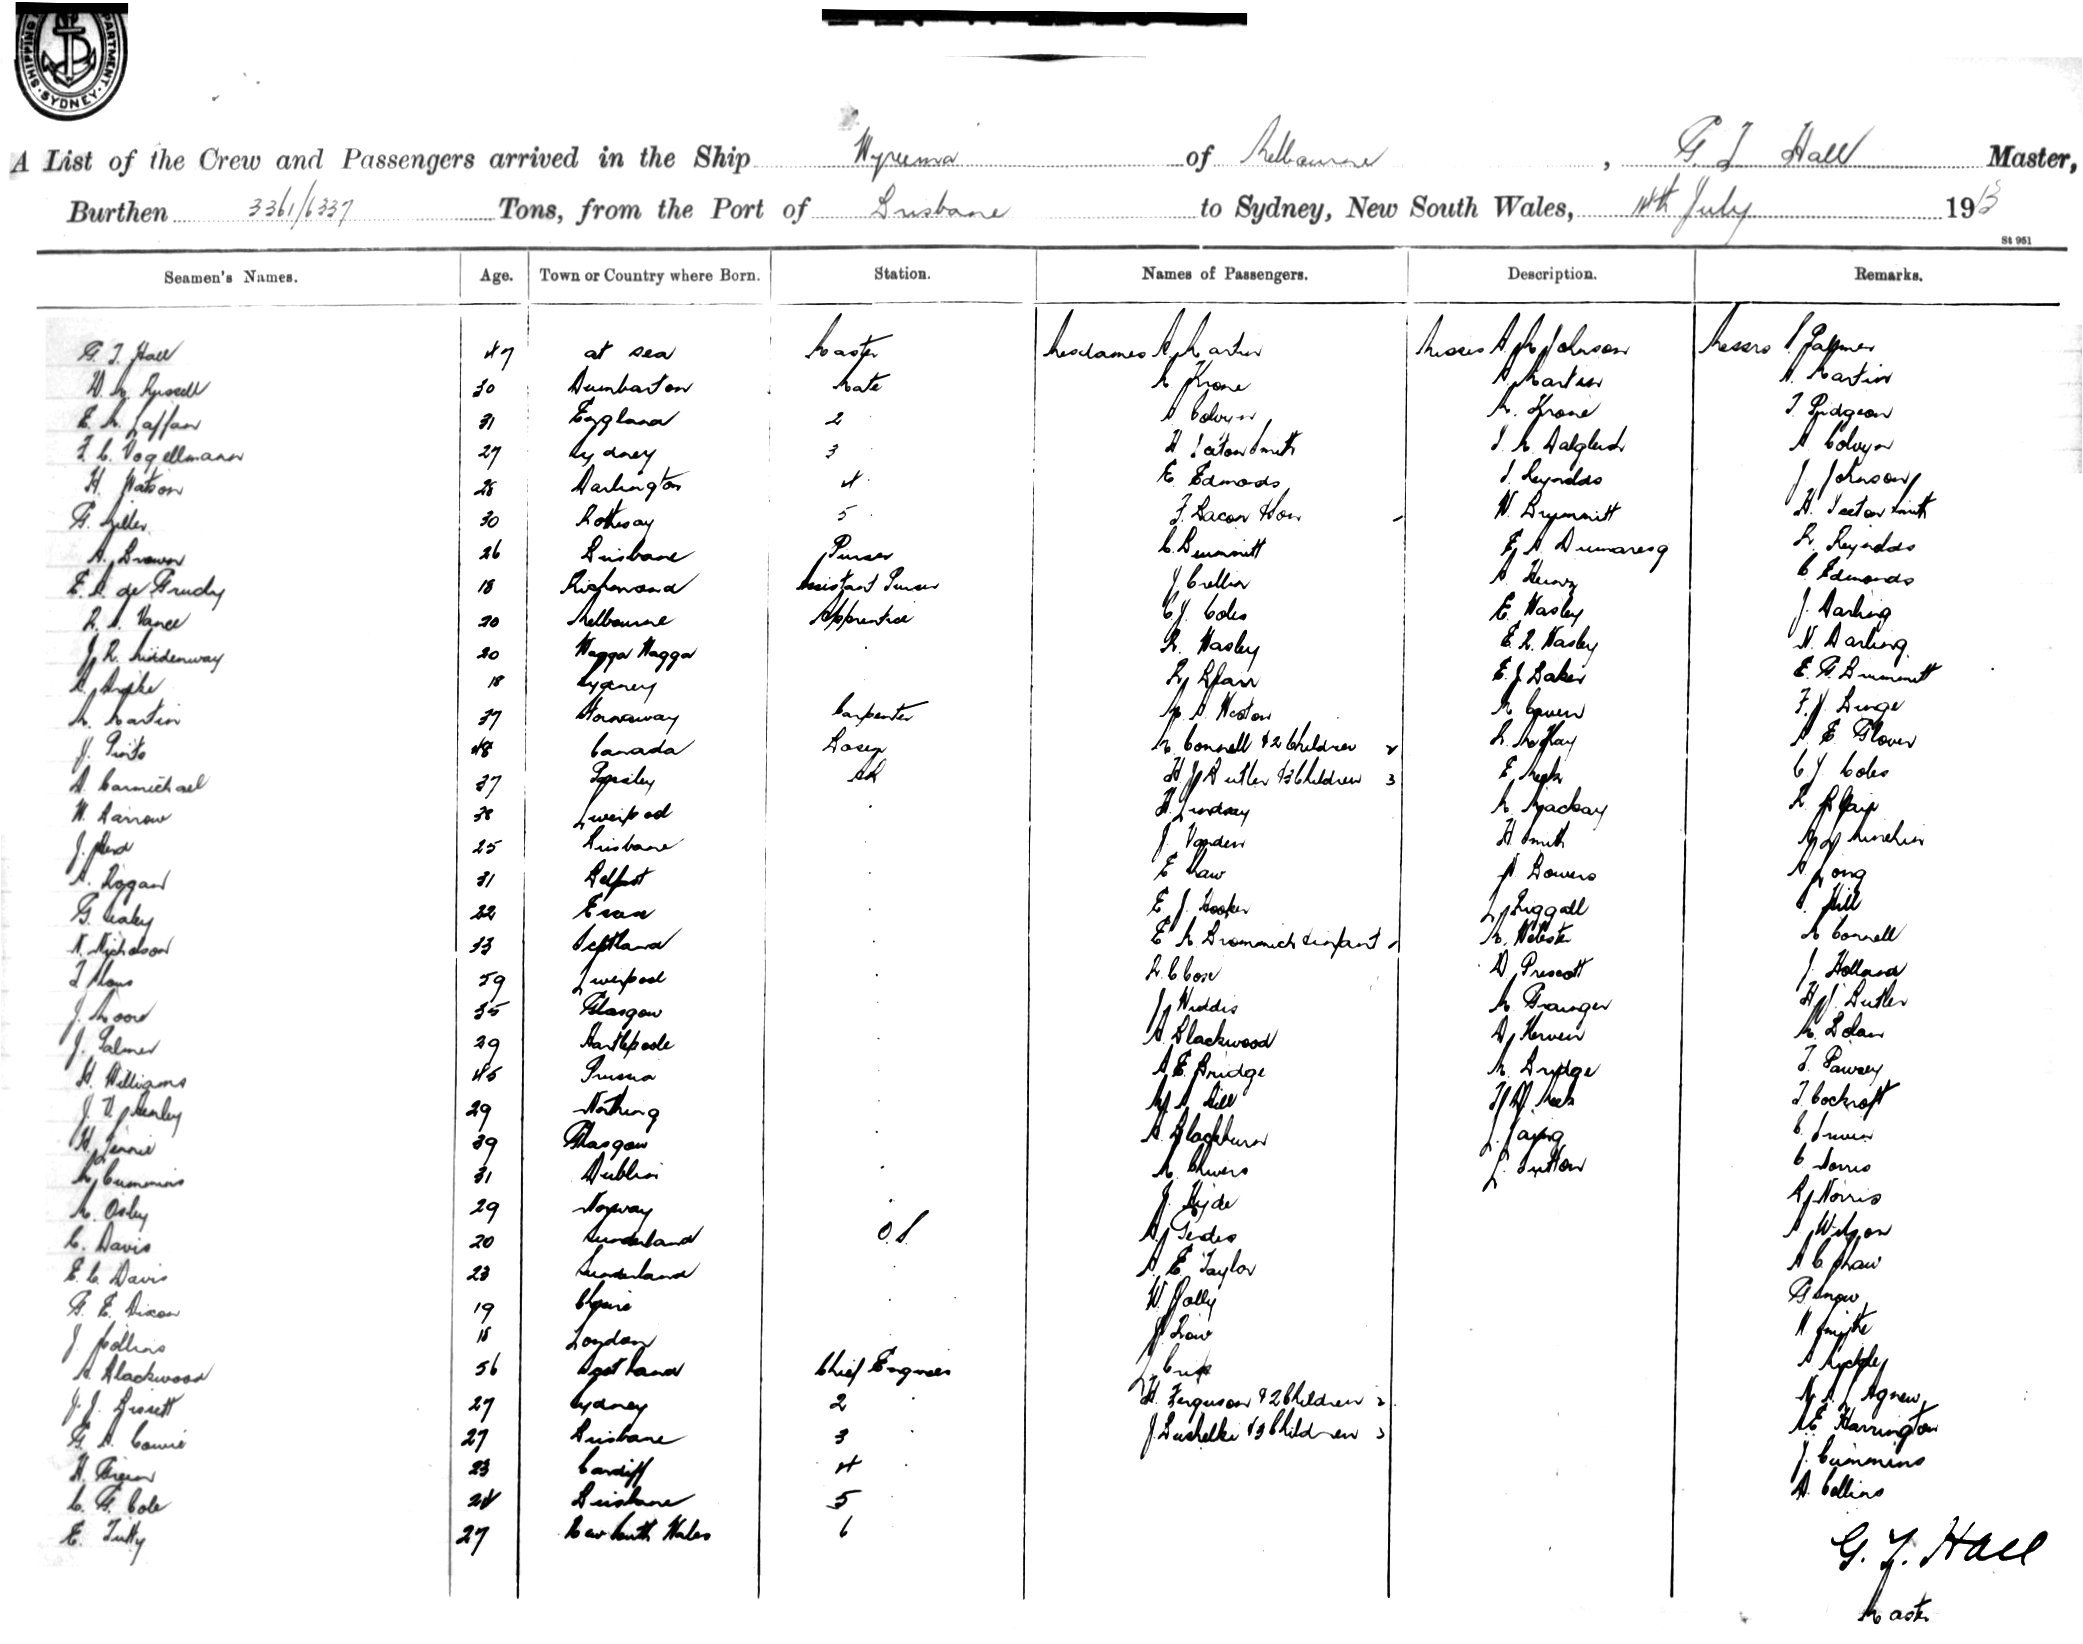 SHIPPING DEPARTMENT SYDNEY
A List of the Crew and Passengers arrived in the Ship Wyreema of Melbourne, G. T Hall Master,
Burthen 3361/6337 Tons, from the Port of Brisbane to Sydney, New South Wales, 14th July 1913
St 951
Seamen's Names. Age. Town or Country where Born. Station. Names of Passengers. Description. Remarks.
G. T. Hall 47 at sea Master Mesdames A Martin Misses A M Johnson Messrs Palmer
D. M. Russell 30 Dumbarton Mate M Krone A Martin A. Martin
E. M. Laffan 31 England 2 A Colvyn M. Krone T Pidgeon
F. C. Vogellmann 27 Sydney 3 H Seton Smith I. M Dalgleish A Colvyn
H. Watson 28 Darlington 4 E Edmonds S. Reynolds J Johnson
G. Miller 30 Rothesay 5 F. Bacon & Son W Brummitt H. Seeton Smith
A. Brown 26 Brisbane Purser C. Brummitt E A Dumaresq R. Reynolds
E. A. de Gruchy 18 Richmond Assistant Purser J Crellin A Heinz C Edmonds
R. A. Vance 20 Melbourne Apprentice C J. Coles E. Wasley J. Darling
J R. Middenway 20 Wagga Wagga R. Wasley E. R. Wasley N Darling
18 Sydney R Blair E. J Baker E. G. Brummitt
M. Martin 37 Stornaway Carpenter M A. Weston M Cowen F. J. Binge
J. Pinto 48 Canada Bosun M. Connell & 2 Children 2 R. McKay A E Glover
D. Carmichael 37 Paisley AB H J Butler & 3 Children 3 E Meek C J. Coles
W. Darrow 38 Liverpool H. Lindsay M Mackay R Blair
J. Reid 25 Brisbane J Varden H Smith Minchin
A. Rogan 31 Belfast E Shaw A Bowers A Long
G. Sealey 22 Essex E J. Hooker L Riggall Hill
N. Nicholson 33 Shetland E M Brommich & infant M. Webster M Connell
59 Liverpool R. C Cox D Prescott J. Holland
J. Moore 35 Glasgow J Widdis M Grainger H J. Butler
J. Palmer 29 Hartlepool A. Blackwood A Kerven M. Dolan
H. Williams 45 Prussia A. E. Bridge M. Bridge T. Pawsey
J. V. Henley 29 Worthing M A Hill Meek T. Cockroft
H. Rennie 39 Glasgow A. Blackburn L. Laing C. Irwin
M Cummins 31 Dublin M. Chivers L. Sutton C. Norris
M. Osley 29 Norway J. Hyde A Norris
C. Davis 20 Sunderland O.S. A. Gerdes A Wilson
E. C. Davis 23 Sunderland A. E Taylor A C Shaw
G. E. Dixon 19 W. Jolly G Snow
J. Collins 18 London J. Low N Smythe
A. Blackwood 56 Scotland Chief Engineer L Crisp
J. J. Bissett 27 Sydney 2 H. Ferguson & 2 Children 2 Agnew
G. A. Cowie 27 Brisbane 3 & 3 Children 3 E Harrington
H. Green 23 Cardiff 4 J. Cummins
C. G. Cole 24 Brisbane 5 A. Collins
E. Tutty 27 New South Wales 6
G. T. Hall
Master